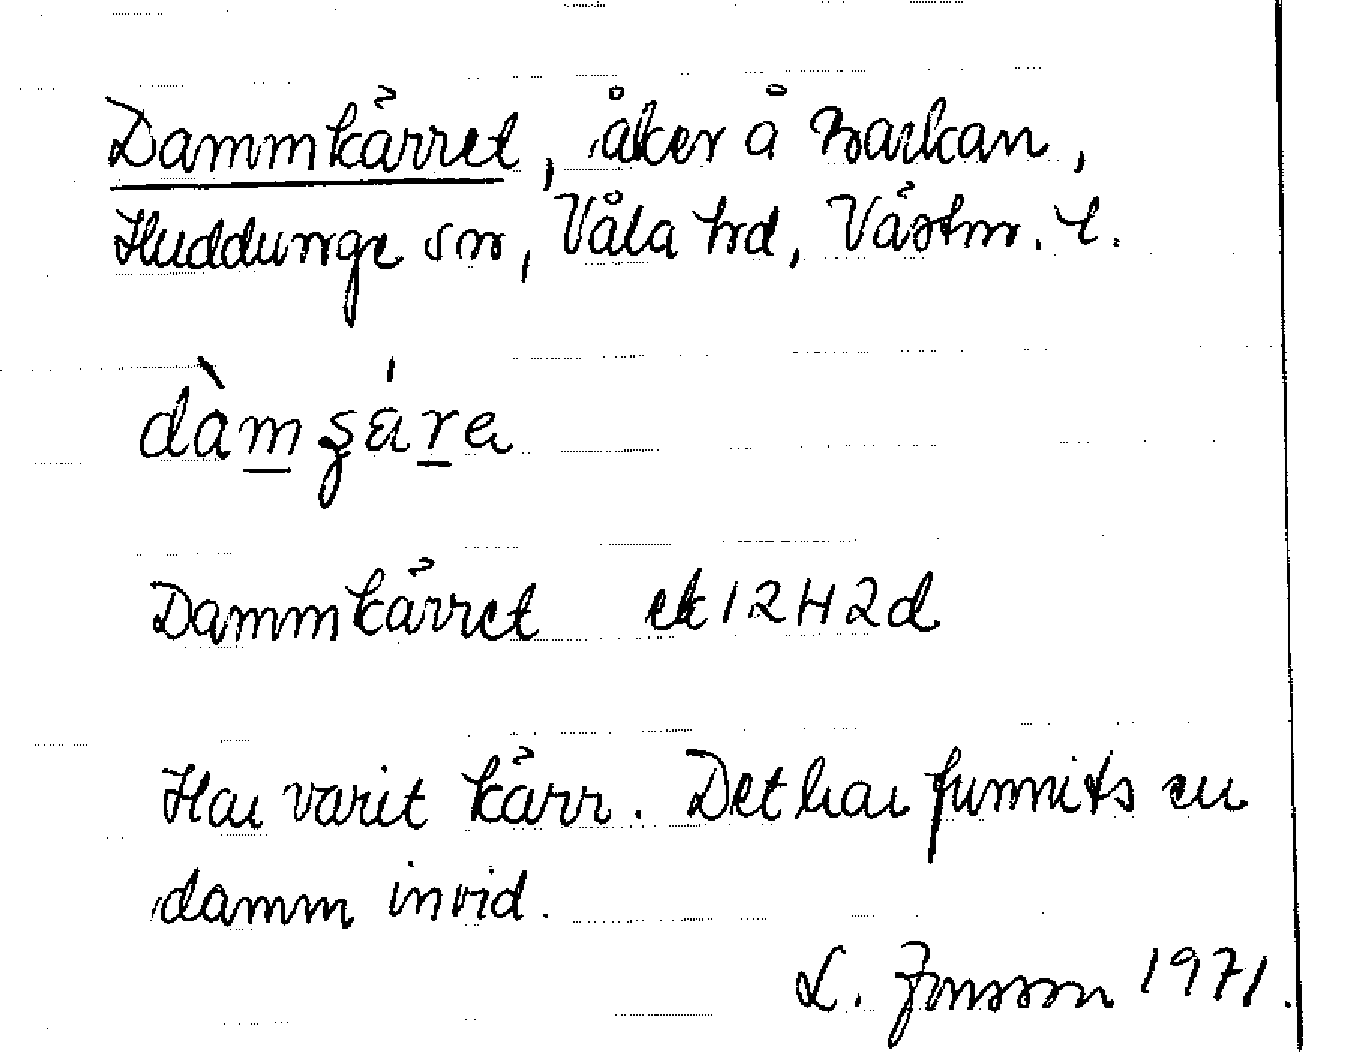 Dammkärret, åker å Barkan,
Huddunge sn, Våla hd, Västm. l.
dàmʂä́re
Dammkärret ek 12H2d
Har varit kärr. Det har funnits en
damm invid.
L. Jonsson 1971.